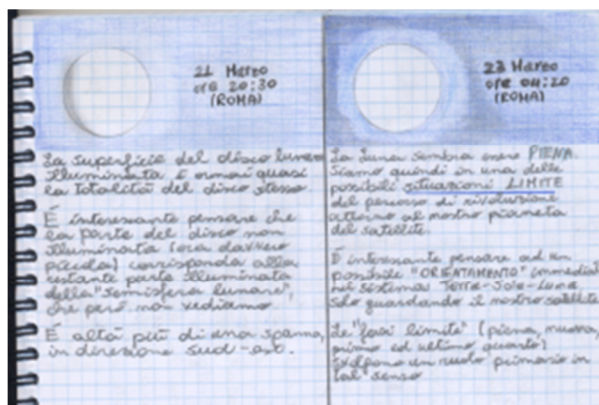 21 Marzo
ore 20:30
(ROMA)
La superficie del disco lunare
illuminata è ormai quasi
la totalità del disco stesso
È interessante pensare che
la parte del disco non
illuminata (ora davvero
piccola) corrisponda alla
restante parte illuminata
della "semisfera lunare",
che però non vediamo
È alta più di una spanna,
in direzione sud-est.
23 Marzo
ore 04:20
(ROMA)
La Luna sembra essere PIENA.
Siamo quindi in una delle
possibili situazioni LIMITE
del percorso di rivoluzione
attorno al nostro pianeta
del satellite.
È interessante pensare ad un
possibile "ORIENTAMENTO"
nel sistema Terra-Sole-Luna
solo guardando il nostro satellite
Le "fasi limite" (piena, nuova,
primo ed ultimo quarto)
svolgono un ruolo primario in
tal senso